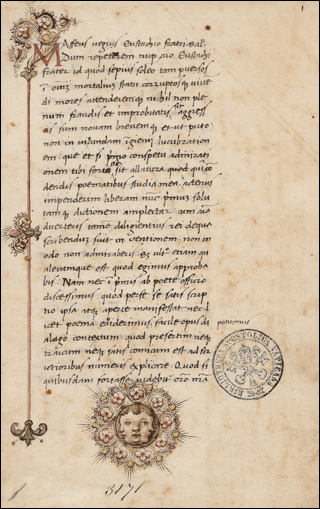 Maffeus vegius Eustachio fratri Sal.
Dum repeterem nup aĩo Eustachi
frater id quod sepius soleo tam puersos
ĩ oĩm mortalium statu corruptosq vive
di mores attenderemq nihil non ple
num fraudis et improbitatis aggress
sum novam brevemq et ut puto
non in iucundam ĩgenii lucubration
em. que et si pmo conspectu admirati
onem tibi forte sit allatura quod
dendis poematibus studia mea
impenderim liberam nuc pmus solu
tamq dictionem amplectar
verteris tame diligentius rei deque
scribendum sint inventionem non
odo non admiraberis. ut etiam
alecumque est quod egimus approba
bis. Nam nec ĩ pmus ab poete officio
discessimus. quod per se se satis scrip
tio ipsa atq apere manifestat nec
cet poema edidermus. facile opus di
alago contextum quod presertim neq
tragicum neq satis comicum est
ioribus numeris explicare. Quod si
quibusdam fortasse videbit
potuimus
BIBLIOTHECA APOSTOLICA VATICANA
3171